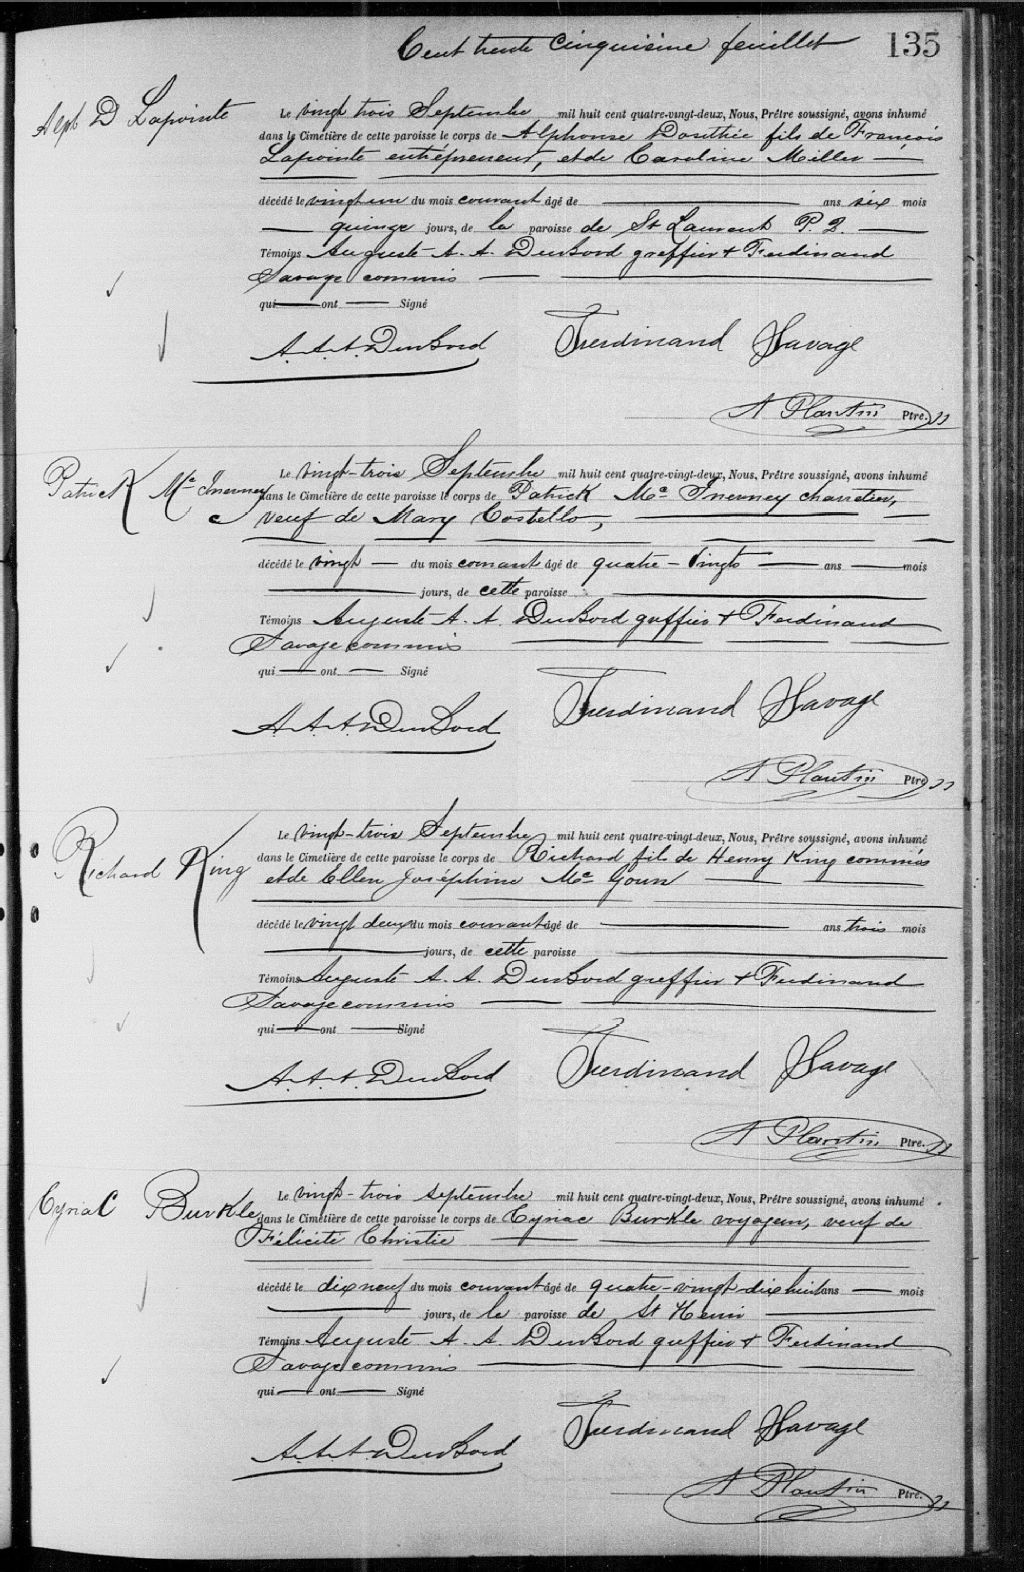 Cent trente cinquième feuillet 135
Alph D Lapointe
Le vingt trois Septembre mil huit cent quatre-vingt-deux, Nous, Prêtre soussigné, avons inhumé
dans le Cimetière de cette paroisse le corps de Alphonse Dosithée fils de François
Lapointe entrepreneur, et de Caroline Miller
décédé le vingt un du mois courant âgé de ans six mois
quinze jours, de la paroisse de St Laurent P. Q.
Témoins Auguste A. A. DuBord greffier & Ferdinand
Savage commis
qui ont Signé
A. A. A. DuBord Ferdinand Savage
A Plantin Ptre.
Patrick Mc Inerney
Le vingt-trois Septembre mil huit cent quatre-vingt-deux, Nous, Prêtre soussigné, avons inhumé
dans le Cimetière de cette paroisse le corps de Patrick Mc Inerney charretier,
veuf de Mary Costello,
décédé le vingt du mois courant âgé de quatre-vingts ans mois
jours, de cette paroisse
Témoins Auguste A. A. DuBord greffier & Ferdinand
Savage commis
qui ont Signé
A. A. A DuBord Ferdinand Savage
A Plantin Ptre
Richard King
Le vingt-trois Septembre mil huit cent quatre-vingt-deux, Nous, Prêtre soussigné, avons inhumé
dans le Cimetière de cette paroisse le corps de Richard fils de Henry King commis
et de Ellen Joséphine Mc Goun
décédé le vingt deux du mois courant âgé de ans trois mois
jours, de cette paroisse
Témoins Auguste A. A. DuBord greffier & Ferdinand
Savage commis
qui ont Signé
A. A. A. DuBord Ferdinand Savage
A Plantin Ptre.
Cyriac Burkle
Le vingt-trois septembre mil huit cent quatre-vingt-deux, Nous, Prêtre soussigné, avons inhumé
dans le Cimetière de cette paroisse le corps de Cyriac Burkle voyageur, veuf de
Félicité Christie
décédé le dix neuf du mois courant âgé de quatre-vingt-dix huit ans mois
jours, de la paroisse de St Henri
Témoins Auguste A. A. DuBord greffier & Ferdinand
Savage commis
qui ont Signé
A. A. A. DuBord Ferdinand Savage
A Plantin Ptre.